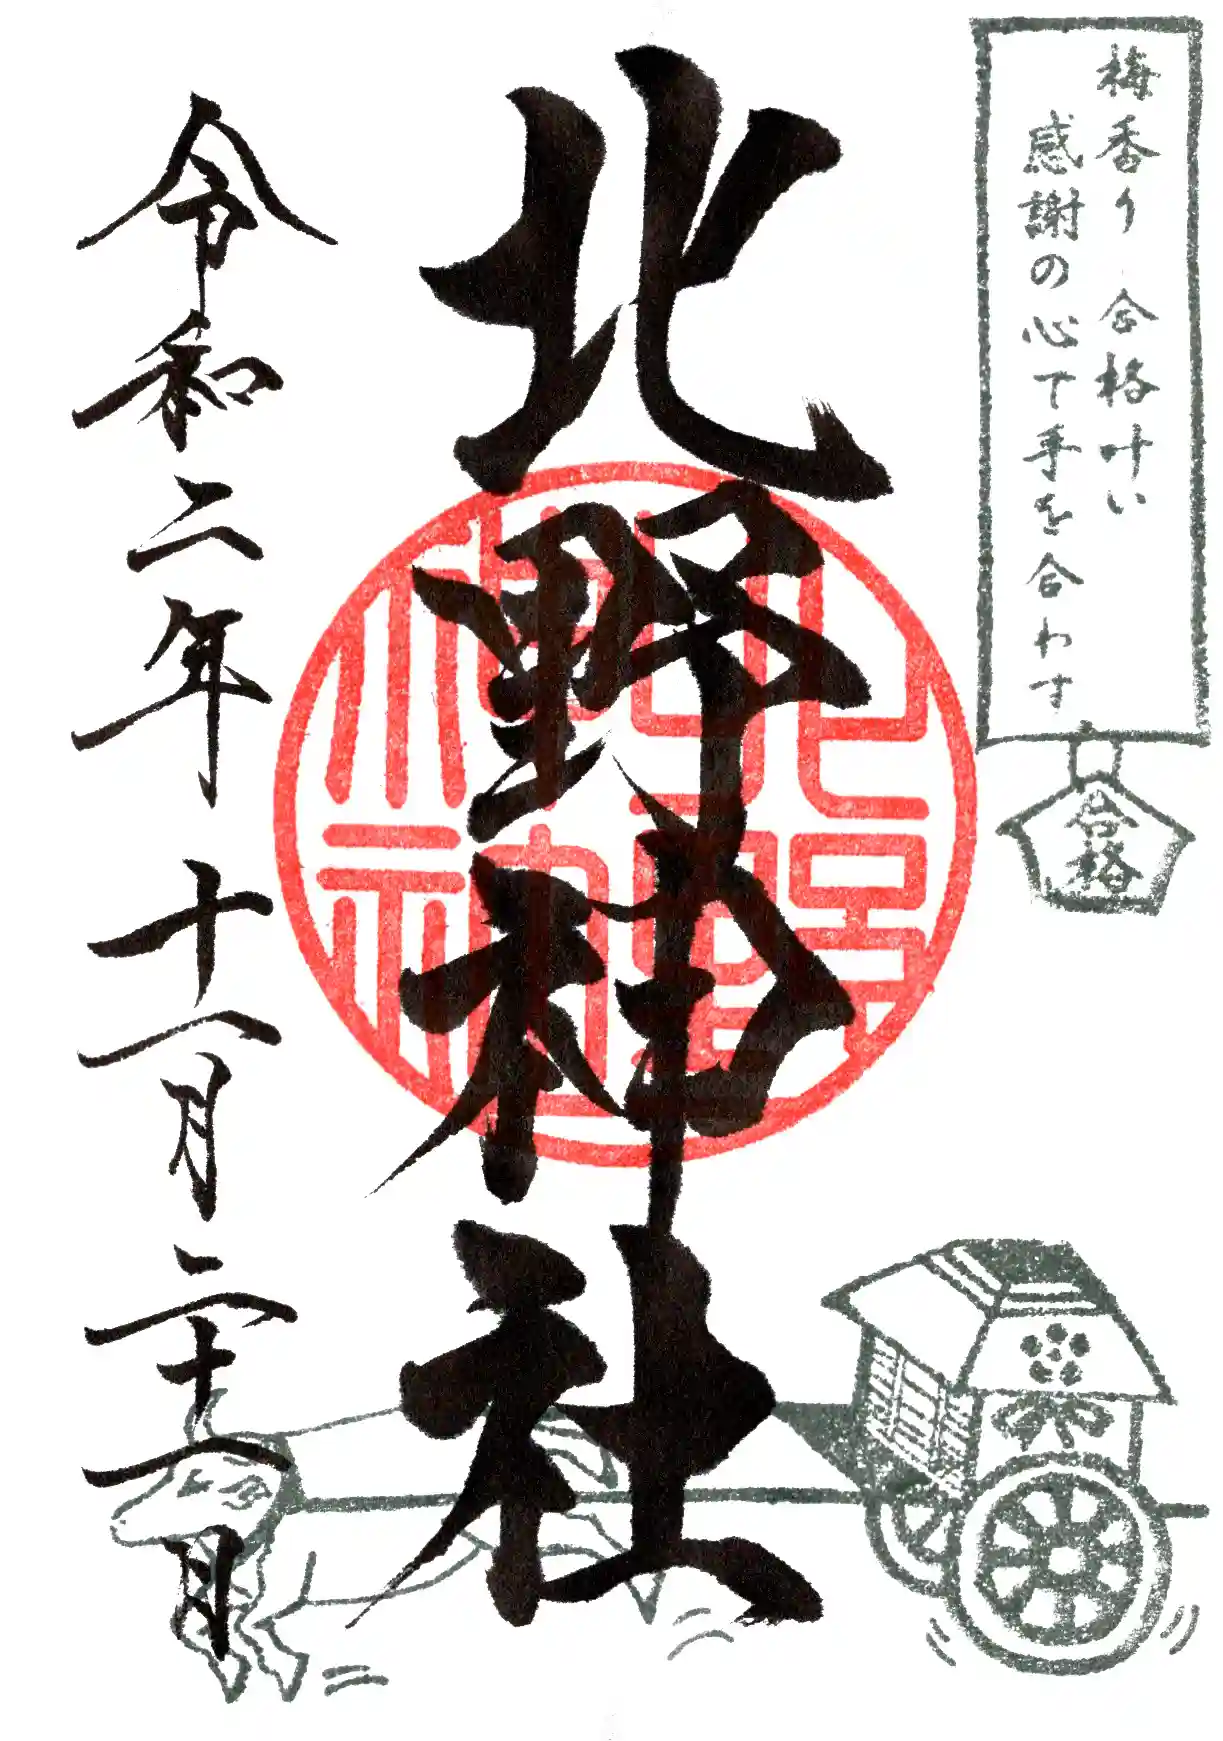 梅香り 合格叶い
感謝の心で手を合わす
合格
北野神社
令和二年十一月二十一日